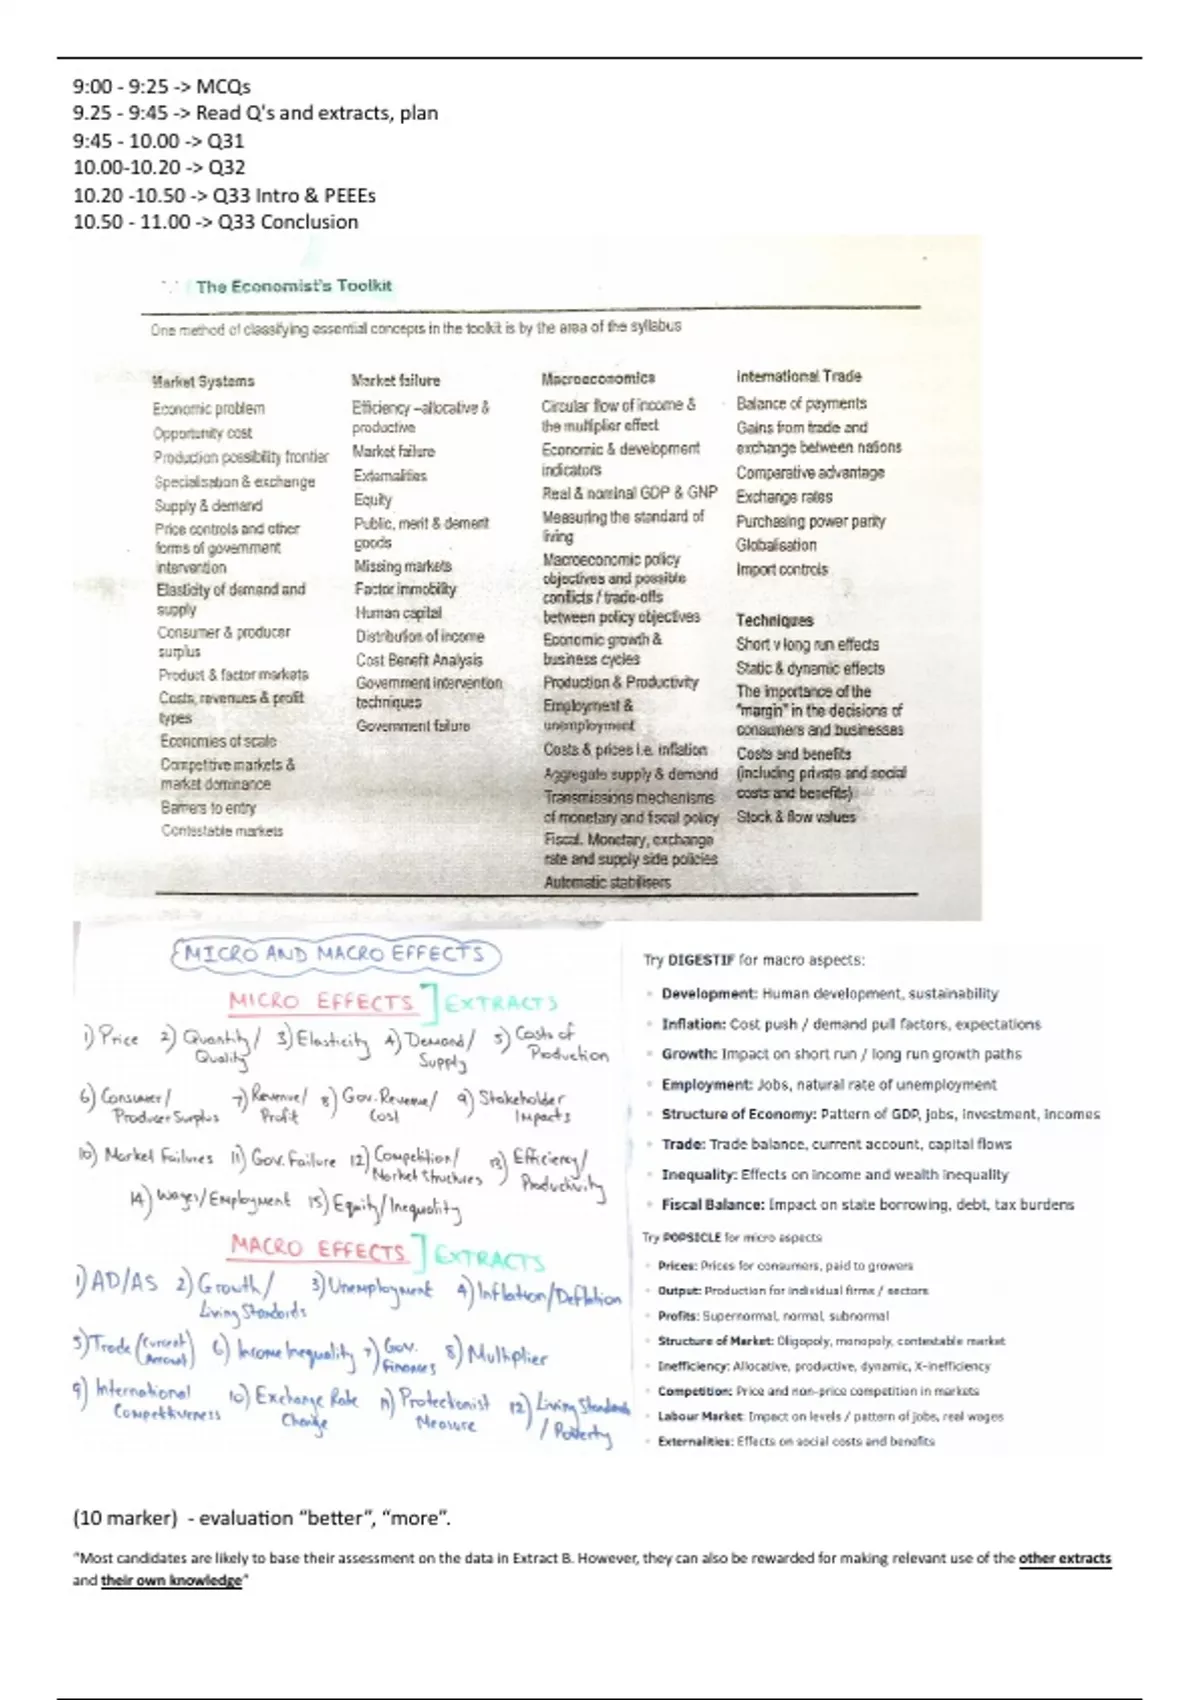 9:00 - 9:25 -> MCQs
9.25 - 9:45 -> Read Q's and extracts, plan
9:45 - 10.00 -> Q31
10.00-10.20 -> Q32
10.20 -10.50 -> Q33 Intro & PEEEs
10.50 - 11.00 -> Q33 Conclusion
The Economist's Toolkit
One method of classifying essential concepts in the toolkit is by the area of the syllabus
Market Systems
Economic problem
Opportunity cost
Production possibility frontier
Specialisation & exchange
Supply & demand
Price controls and other
forms of government
intervention
Elasticity of demand and
supply
Consumer & producer
surplus
Product & factor markets
Costs, revenues & profit
types
Economies of scale
Competitive markets &
market dominance
Barriers to entry
Contestable markets
Market failure
Efficiency –allocative &
productive
Market failure
Externalities
Equity
Public, merit & demerit
goods
Missing markets
Factor immobility
Human capital
Distribution of income
Cost Benefit Analysis
Government intervention
techniques
Government failure
Macroeconomics
Circular flow of income &
the multiplier effect
Economic & development
indicators
Real & nominal GDP & GNP
Measuring the standard of
living
Macroeconomic policy
objectives and possible
conflicts / trade-offs
between policy objectives
Economic growth &
business cycles
Production & Productivity
Employment &
unemployment
Costs & prices i.e. inflation
Aggregate supply & demand
Transmissions mechanisms
of monetary and fiscal policy
Fiscal, Monetary, exchange
rate and supply side policies
Automatic stabilisers
International Trade
Balance of payments
Gains from trade and
exchange between nations
Comparative advantage
Exchange rates
Purchasing power parity
Globalisation
Import controls
Techniques
Short v long run effects
Static & dynamic effects
The importance of the
"margin" in the decisions of
consumers and businesses
Costs and benefits
(including private and social
costs and benefits)
Stock & flow values
MICRO AND MACRO EFFECTS
MICRO EFFECTS ] EXTRACTS
1) Price 2) Quantity/ 3) Elasticity 4) Demand/ 5) Costs of
Quality Supply Production
6) Consumer/ 7) Revenue/ 8) Gov. Revenue/ 9) Stakeholder
Producer Surplus Profit Cost Impacts
10) Market Failures 11) Gov. Failure 12) Competition/ 13) Efficiency/
Market Structures Productivity
14) Wages/Employment 15) Equity/Inequality
MACRO EFFECTS ] EXTRACTS
1) AD/AS 2) Growth/ 3) Unemployment 4) Inflation/Deflation
Living Standards
5) Trade (Current 6) Income Inequality 7) Gov. 8) Multiplier
Account) Finances
9) International 10) Exchange Rate 11) Protectionist 12) Living Standards
Competitiveness Change Measure / Poverty
Try DIGESTIF for macro aspects:
• Development: Human development, sustainability
• Inflation: Cost push / demand pull factors, expectations
• Growth: Impact on short run / long run growth paths
• Employment: Jobs, natural rate of unemployment
• Structure of Economy: Pattern of GDP, jobs, investment, incomes
• Trade: Trade balance, current account, capital flows
• Inequality: Effects on income and wealth inequality
• Fiscal Balance: Impact on state borrowing, debt, tax burdens
Try POPSICLE for micro aspects
• Prices: Prices for consumers, paid to growers
• Output: Production for individual firms / sectors
• Profits: Supernormal, normal, subnormal
• Structure of Market: Oligopoly, monopoly, contestable market
• Inefficiency: Allocative, productive, dynamic, X-inefficiency
• Competition: Price and non-price competition in markets
• Labour Market: Impact on levels / pattern of jobs, real wages
• Externalities: Effects on social costs and benefits
(10 marker) - evaluation “better”, “more”.
“Most candidates are likely to base their assessment on the data in Extract B. However, they can also be rewarded for making relevant use of the other extracts
and their own knowledge”